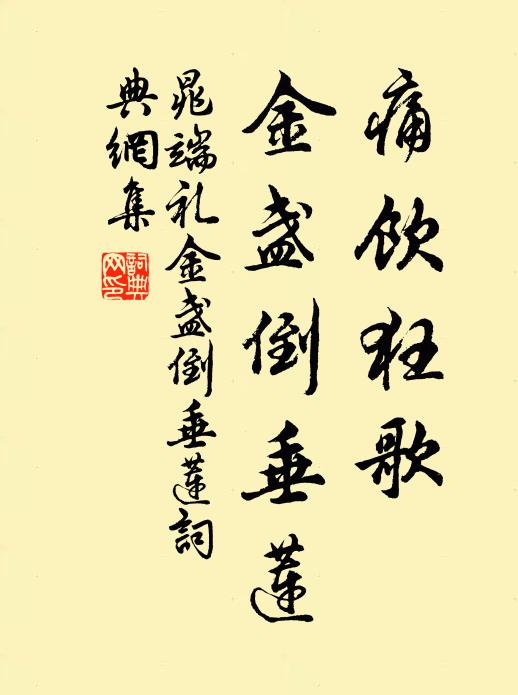 痛飲狂歌
金盞倒垂蓮
晁端礼金盞倒垂蓮詞
典網集
詞典网印